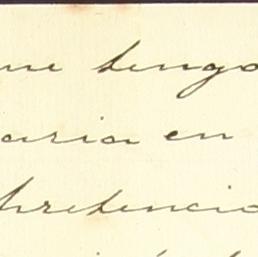 me tengo
aria en
pretencio